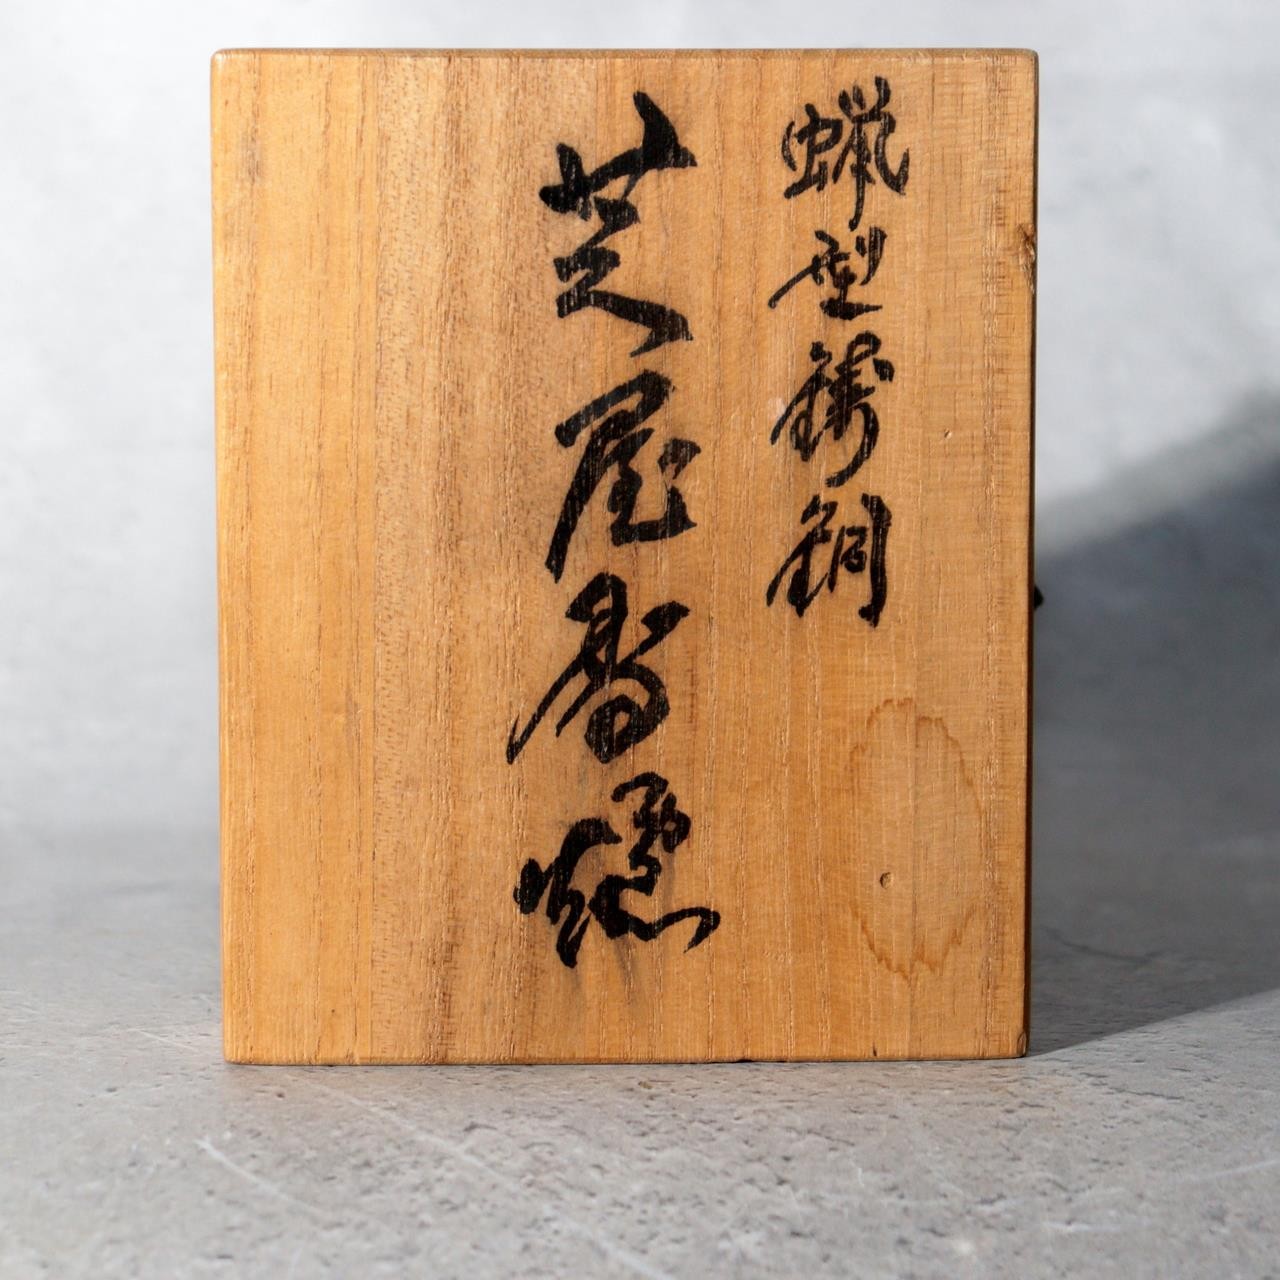 蝋型鋳銅
芝屋香爐